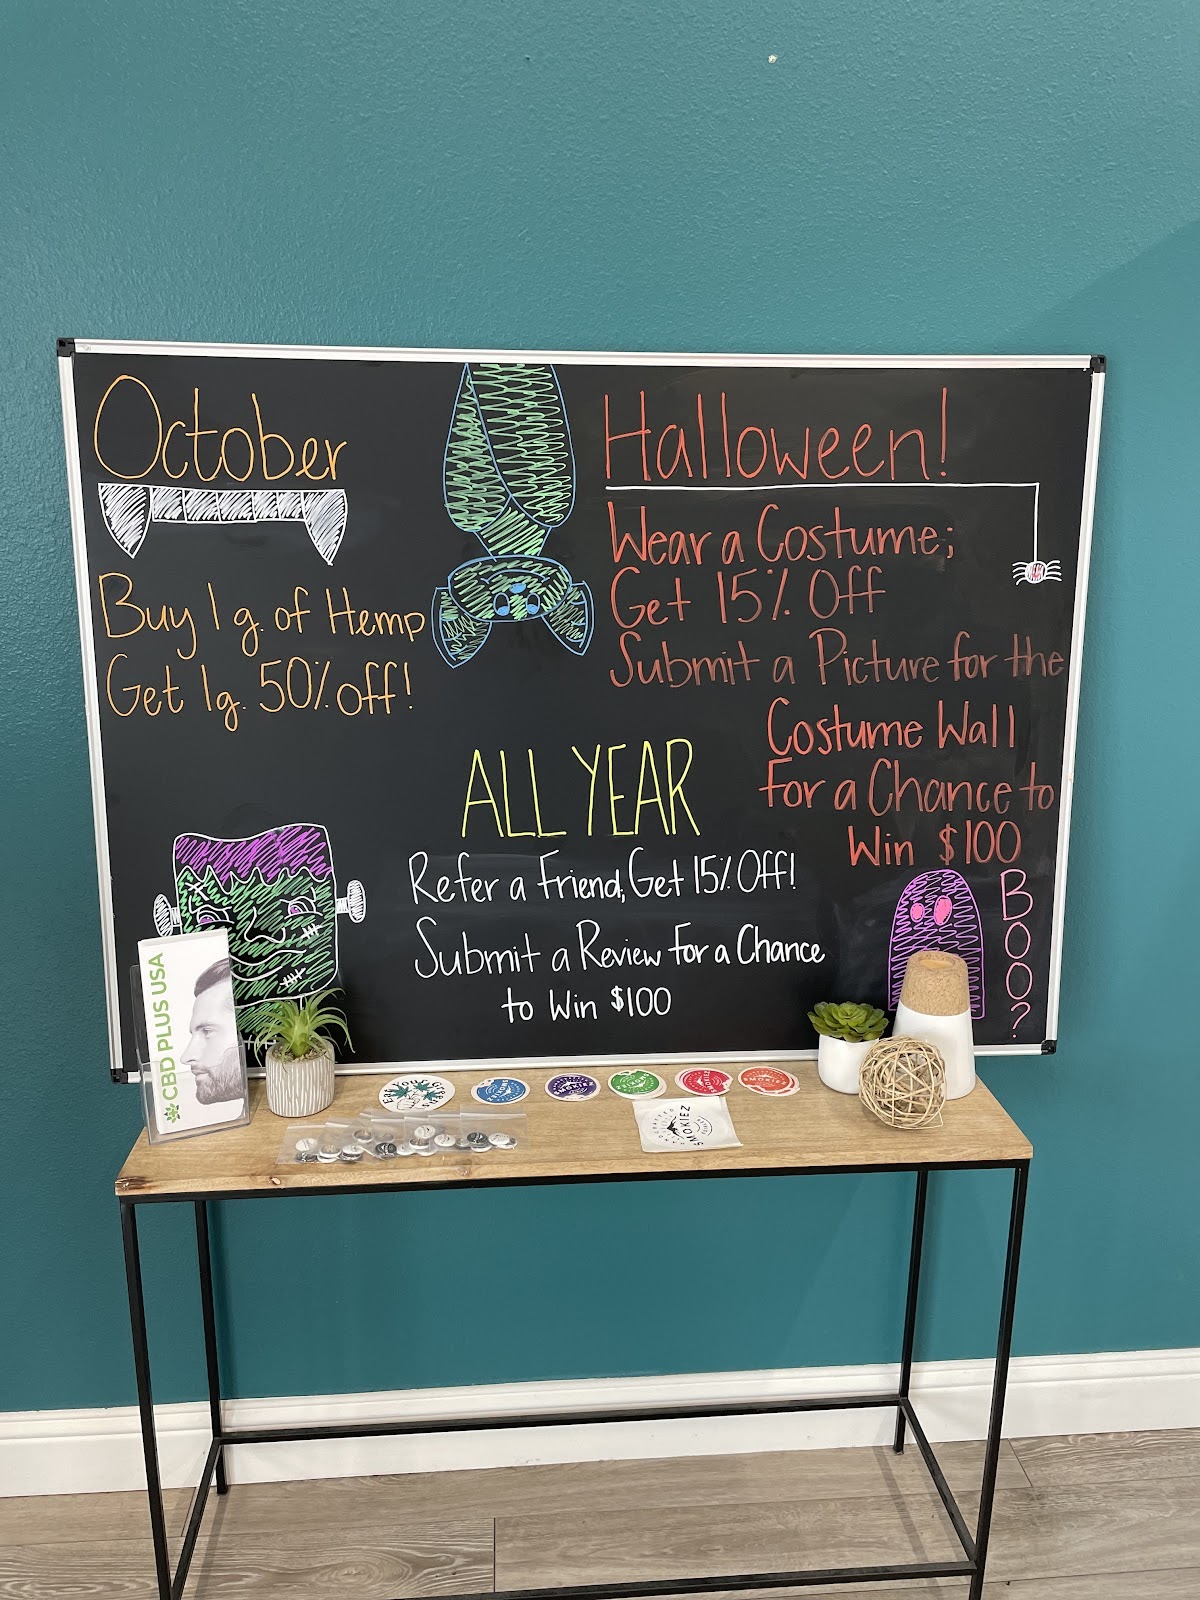 October
Buy 1 g. of Hemp
Get 1g. 50% off!
Halloween!
Wear a Costume;
Get 15% Off
Submit a Picture for the
Costume Wall
For a Chance to
Win $100
ALL YEAR
Refer a Friend, Get 15% Off!
Submit a Review For a Chance
to Win $100
BOO?
CBD PLUS USA
EAT YOUR GREENS
SMOKIEZ
SMOKIEZ
SMOKIEZ
SMOKIEZ
SMOKIEZ
SMOKIEZ